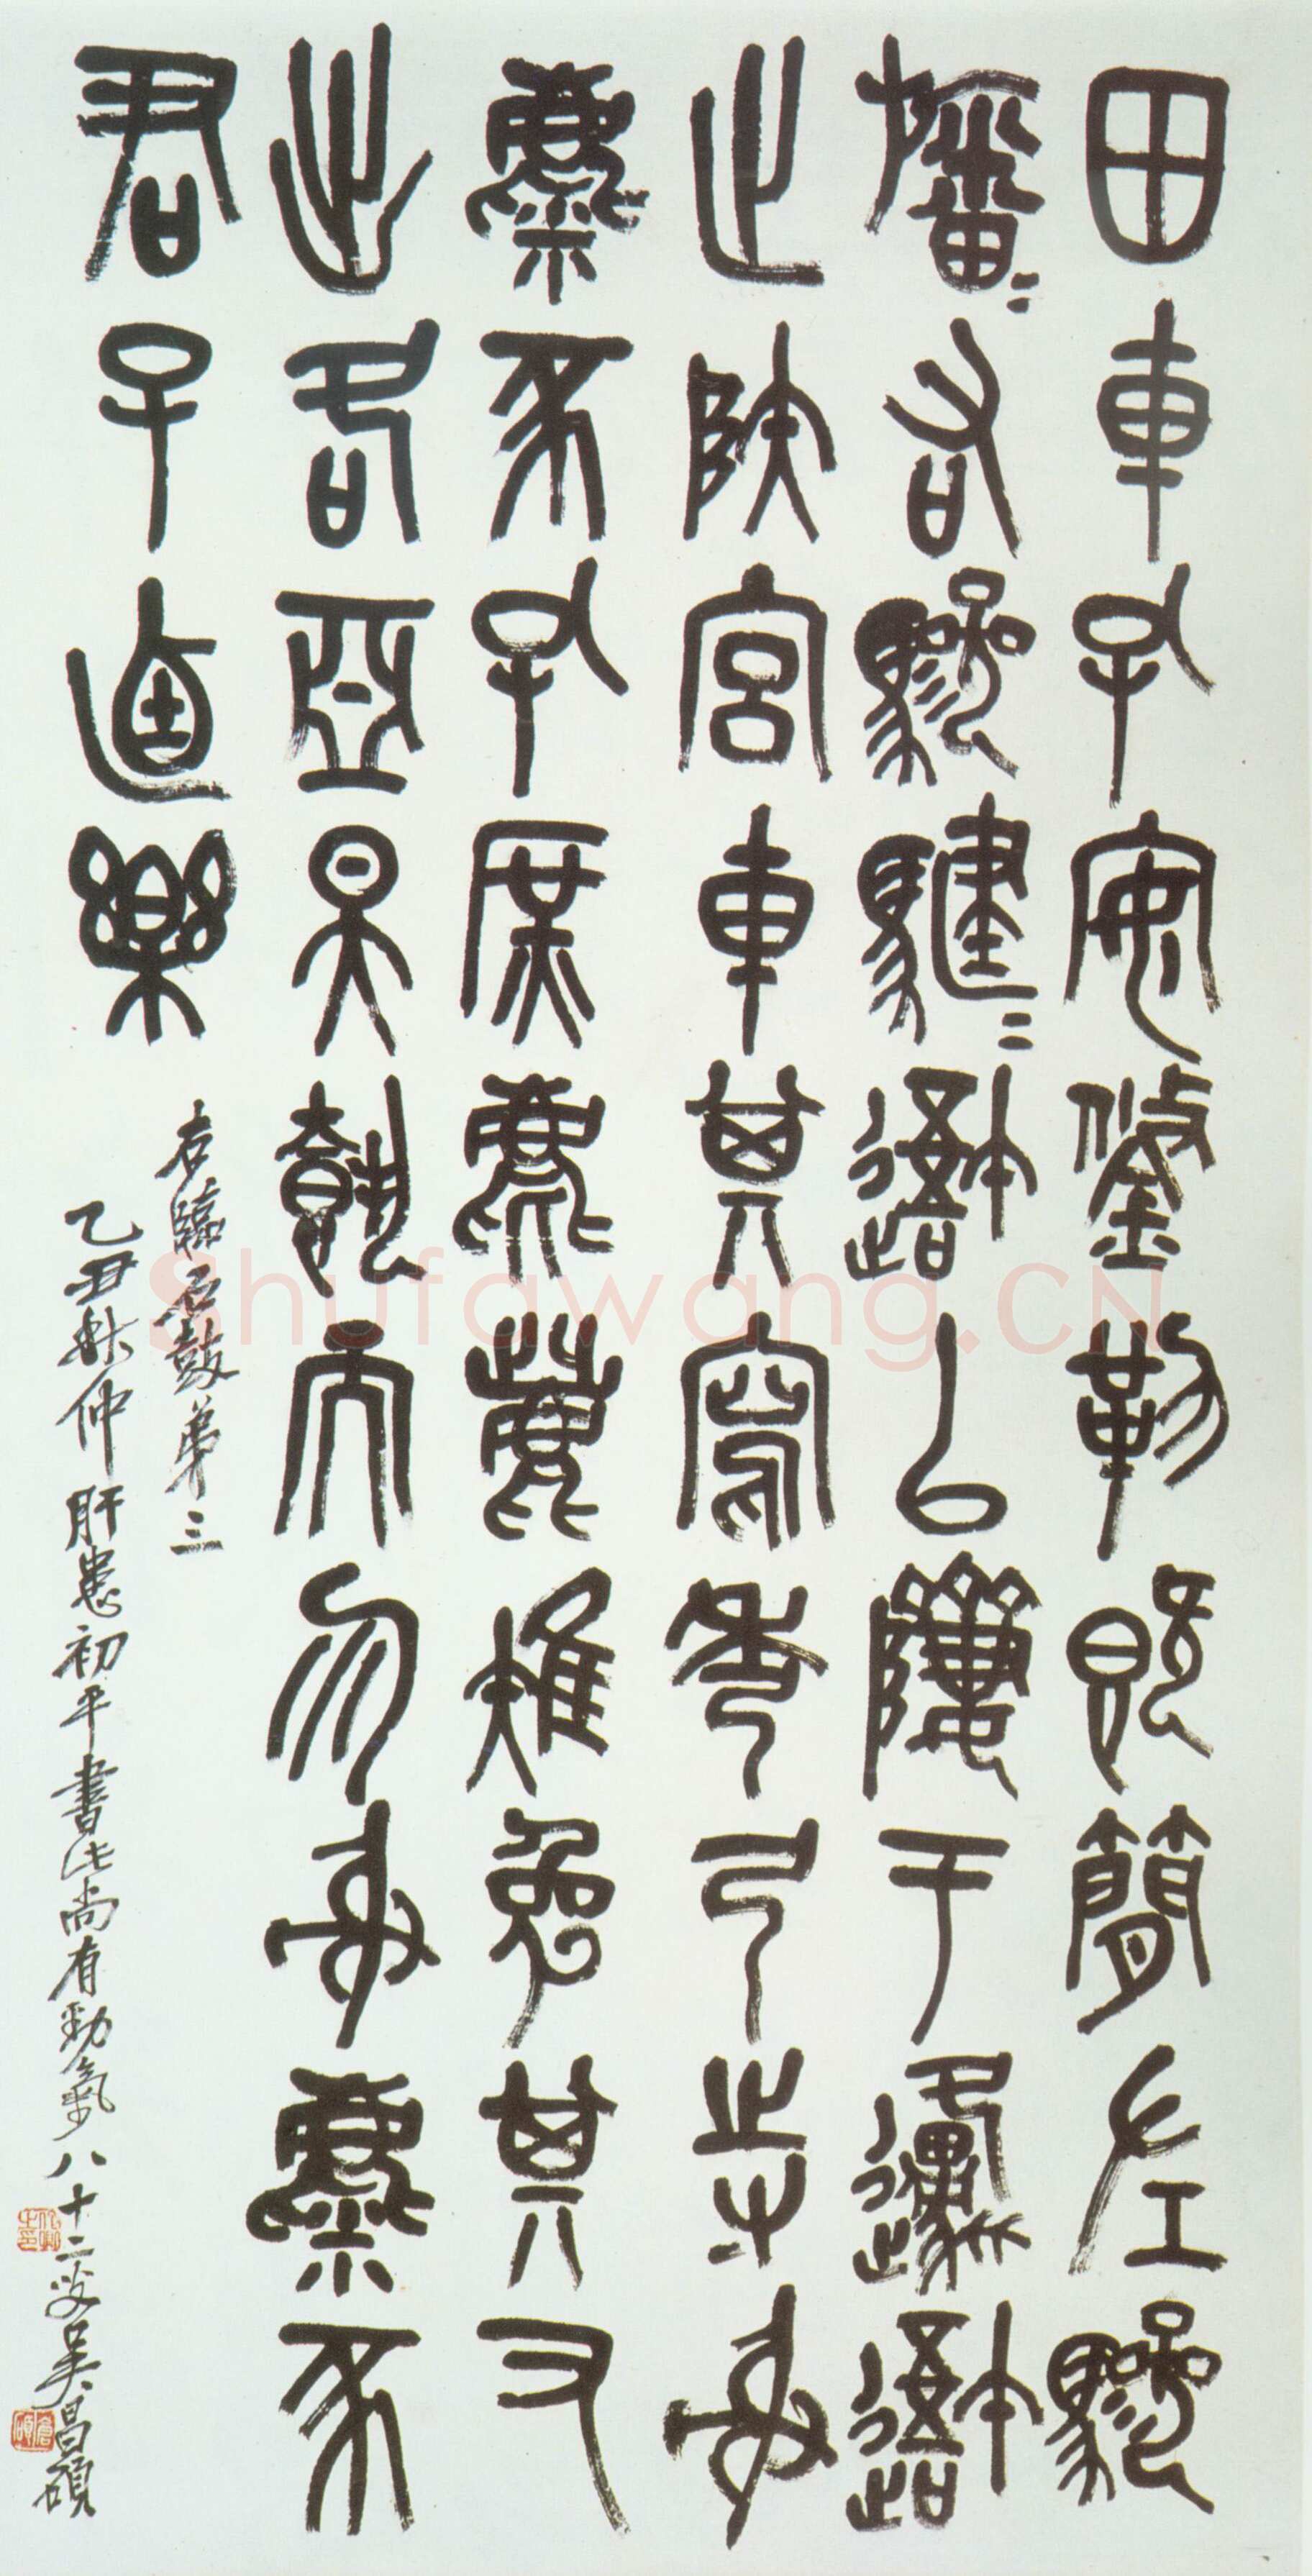 田車孔安鋚勒既簡左驂
旛=右驂騝=吾以隮于邍吾
止陸宮車其寫秀弓寺射
麋豕孔庶麀鹿雉兔其又
出各亞昊執而勿射麋豕
君子逌樂
右臨石鼓弟三
乙丑秋仲肝患初平書此尚有勁氣八十二叟吳昌碩
Shufawang.CN